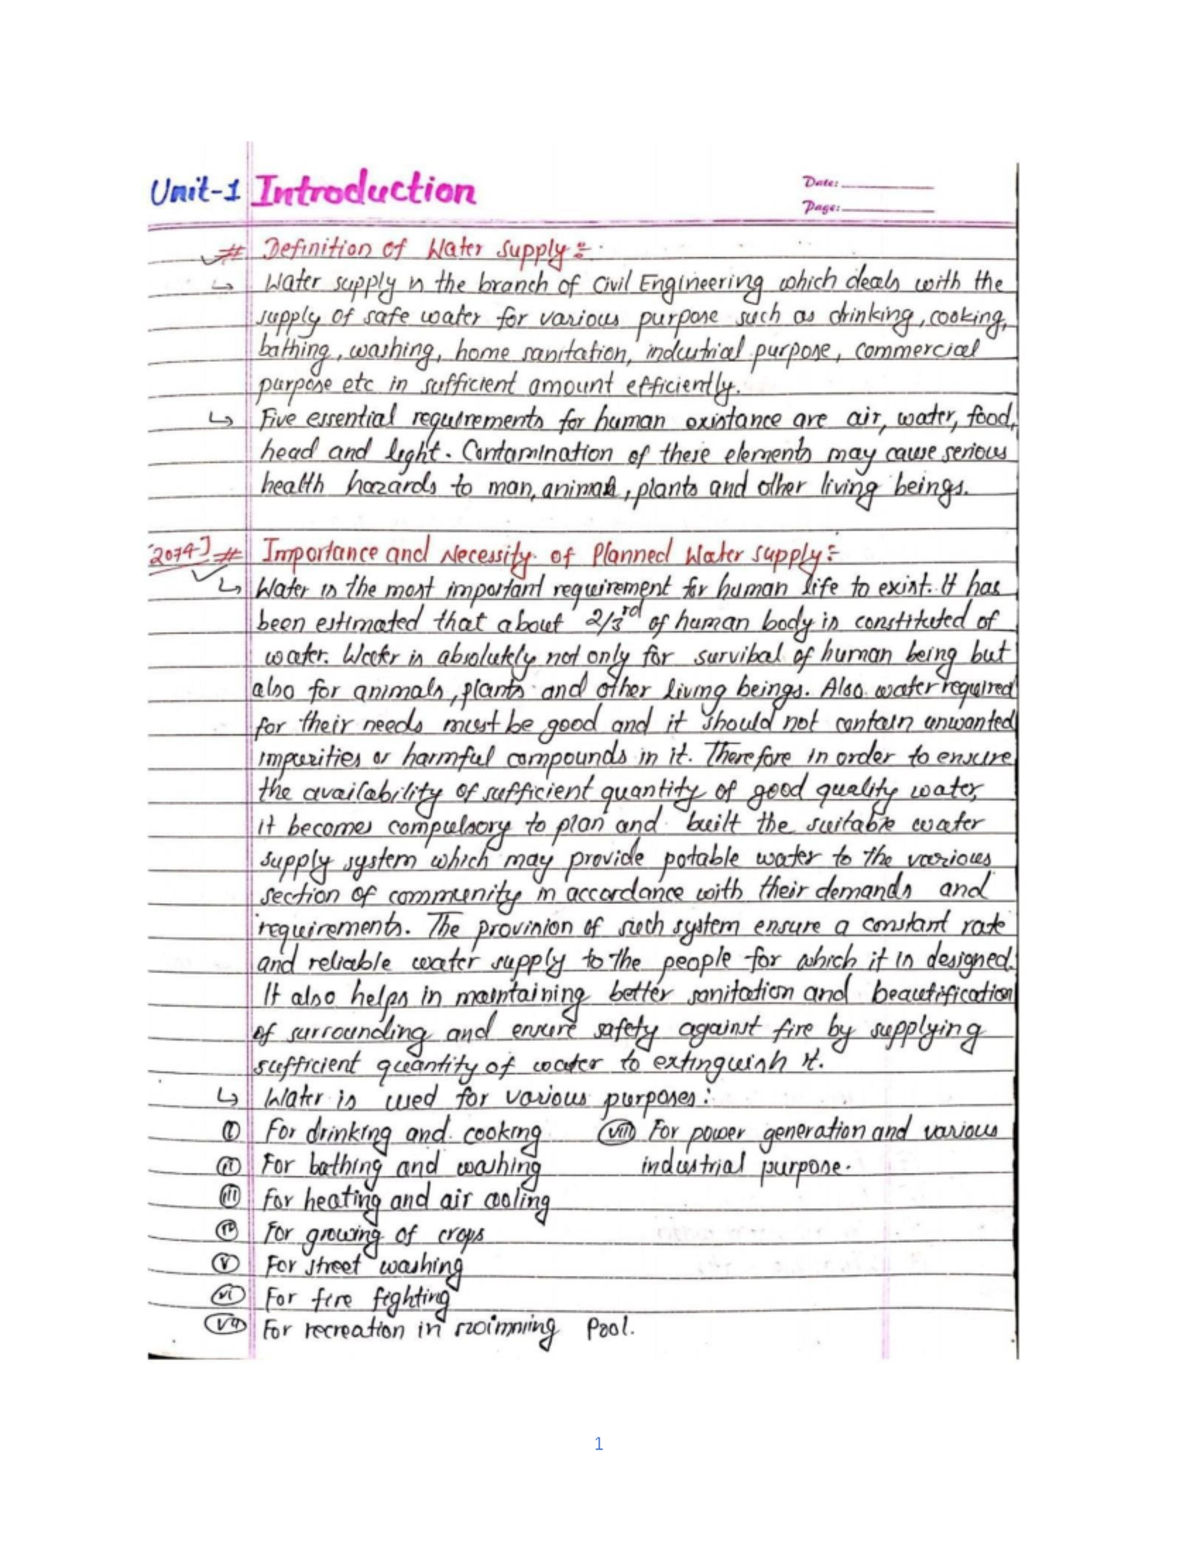 Unit-1 Introduction
Date:
Page:
# Definition of Water Supply:-
↳ Water supply is the branch of Civil Engineering which deals with the
supply of safe water for various purpose such as drinking, cooking,
bathing, washing, home sanitation, industrial purpose, commercial
purpose etc in sufficient amount efficiently.
↳ Five essential requirements for human existance are air, water, food,
head and light. Contamination of these elements may cause serious
health hazards to man, animal, plants and other living beings.
[2074] # Importance and Necessity of Planned Water supply:-
↳ Water is the most important requirement for human life to exist. It has
been estimated that about 2/3rd of human body is constituted of
water. Water is absolutely not only for survibal of human being but
also for animals, plants and other living beings. Also water required
for their needs must be good and it should not contain unwanted
impurities or harmful compounds in it. Therefore in order to ensure
the availability of sufficient quantity of good quality water,
it becomes compulsory to plan and built the suitable water
supply system which may provide potable water to the various
section of community in accordance with their demands and
requirements. The provision of such system ensure a constant rate
and reliable water supply to the people for which it is designed.
It also helps in maintaining better sanitation and beautification
of surrounding and ensure safety against fire by supplying
sufficient quantity of water to extinguish it.
↳ Water is used for various purposes:
(i) For drinking and cooking (viii) For power generation and various
(ii) For bathing and washing industrial purpose.
(iii) For heating and air cooling
(iv) For growing of crops
(v) For street washing
(vi) For fire fighting
(vii) For recreation in swimming Pool.
1